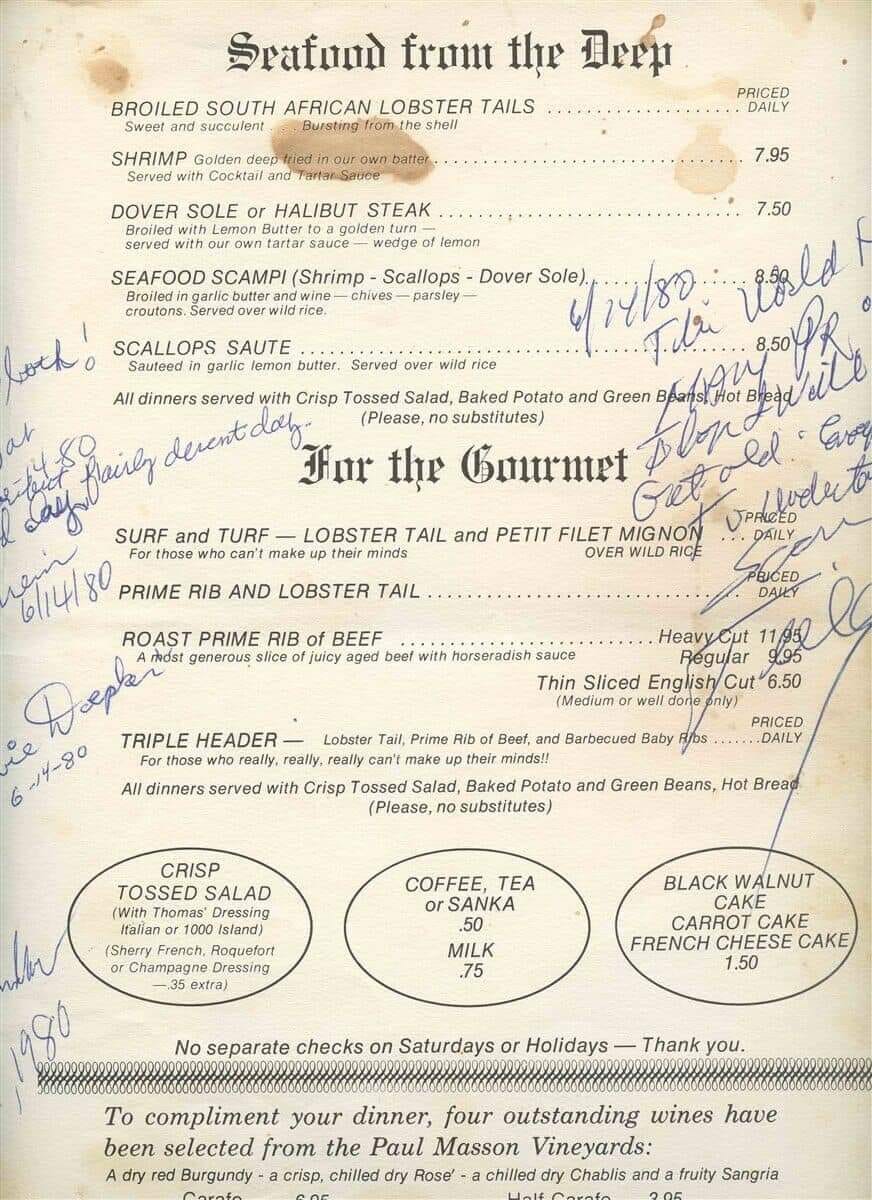 Seafood from the Deep
BROILED SOUTH AFRICAN LOBSTER TAILS .................... PRICED DAILY
Sweet and succulent .... Bursting from the shell
SHRIMP Golden deep fried in our own batter ................................ 7.95
Served with Cocktail and Tartar Sauce
DOVER SOLE or HALIBUT STEAK ................................ 7.50
Broiled with Lemon Butter to a golden turn —
served with our own tartar sauce — wedge of lemon
SEAFOOD SCAMPI (Shrimp - Scallops - Dover Sole) ................ 8.50
Broiled in garlic butter and wine — chives — parsley —
croutons. Served over wild rice.
SCALLOPS SAUTE ................................................ 8.50
Sauteed in garlic lemon butter. Served over wild rice
All dinners served with Crisp Tossed Salad, Baked Potato and Green Beans, Hot Bread
(Please, no substitutes)
6/14/80
World
May
both!
-14-80
day, fairly decent day.
6/14/80
For the Gourmet
SURF and TURF — LOBSTER TAIL and PETIT FILET MIGNON ... PRICED DAILY
For those who can't make up their minds OVER WILD RICE
PRIME RIB AND LOBSTER TAIL ................................ PRICED DAILY
ROAST PRIME RIB of BEEF ........................ Heavy Cut 11.95
A most generous slice of juicy aged beef with horseradish sauce Regular 9.95
Thin Sliced English Cut 6.50
(Medium or well done only)
TRIPLE HEADER — Lobster Tail, Prime Rib of Beef, and Barbecued Baby Ribs ....... PRICED DAILY
For those who really, really, really can't make up their minds!!
All dinners served with Crisp Tossed Salad, Baked Potato and Green Beans, Hot Bread
(Please, no substitutes)
6-14-80
CRISP
TOSSED SALAD
(With Thomas' Dressing
Italian or 1000 Island)
(Sherry French, Roquefort
or Champagne Dressing
—.35 extra)
COFFEE, TEA
or SANKA
.50
MILK
.75
BLACK WALNUT
CAKE
CARROT CAKE
FRENCH CHEESE CAKE
1.50
1980
No separate checks on Saturdays or Holidays — Thank you.
To compliment your dinner, four outstanding wines have
been selected from the Paul Masson Vineyards:
A dry red Burgundy - a crisp, chilled dry Rose' - a chilled dry Chablis and a fruity Sangria
Carafe 6.95 Half Carafe 3.95